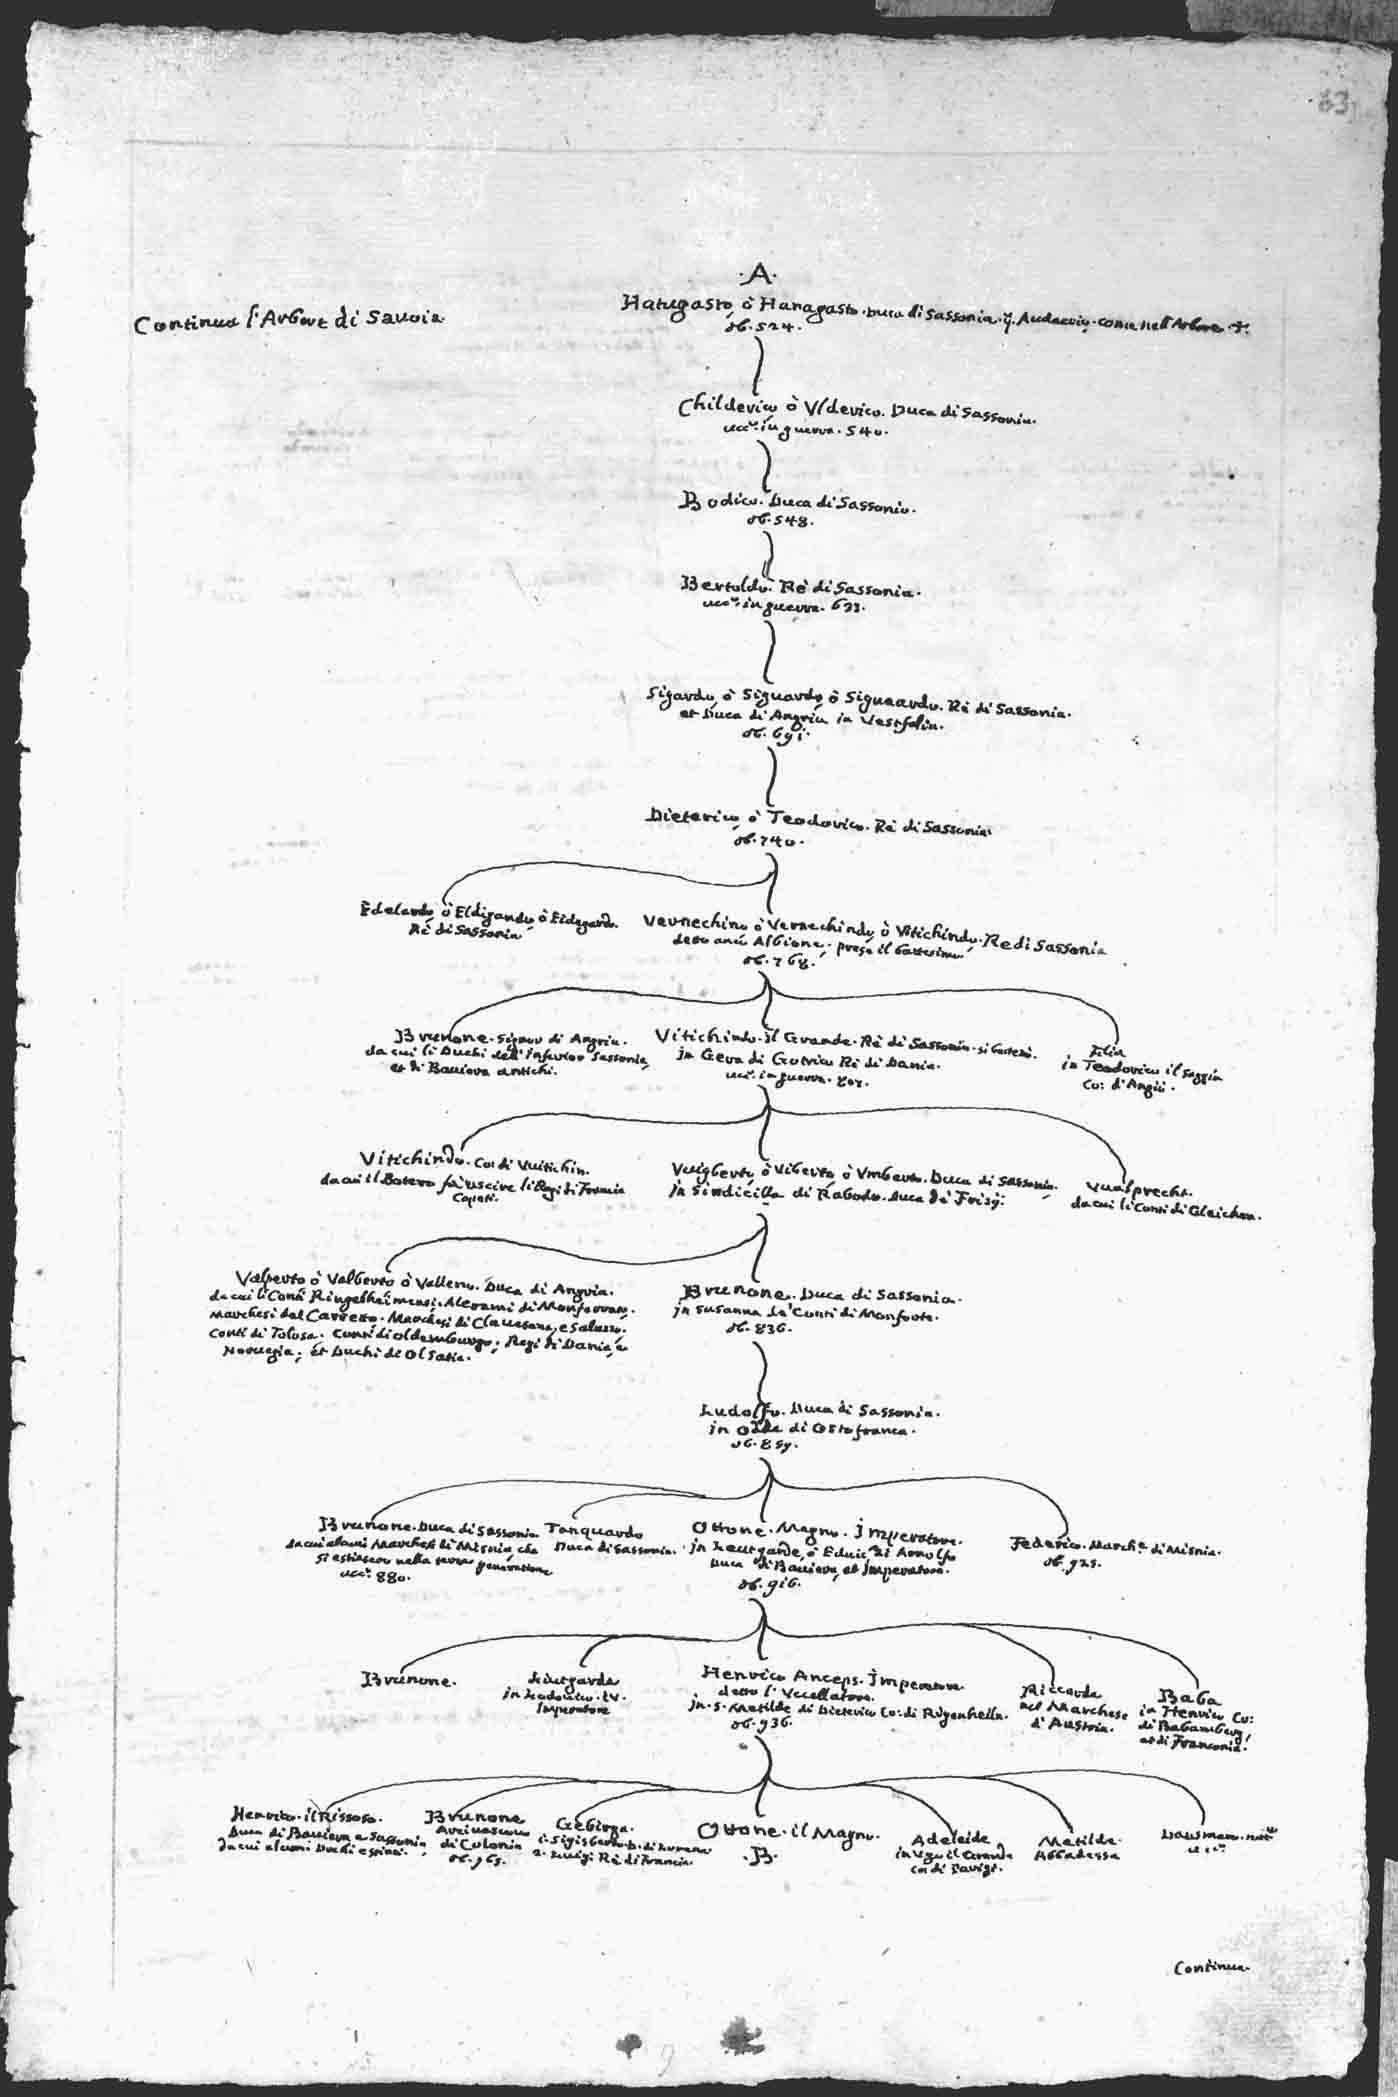 63
·A·
Continua l'Arbore di Savoia
Hatugasto, ò Hanagasto. Duca di Sassonia. come nell'Arbore
ob. 524.
Childerico ò Vlderico. Duca di Sassonia.
ucc.º in guerra. 540.
Bodico. Duca di Sassonia.
ob. 548.
Bertoldo. Rè di Sassonia.
ucc.º in guerra.
Sigardo, ò Siguardo, ò Sigueardo. Rè di Sassonia.
et Duca di Angria in Vestfalia.
ob. 691.
Dieterico, ò Teodorico. Rè di Sassonia
ob. 740.
Edelardo, ò Eldigando, ò
Rè di Sassonia
Vernechino ò Vernechindo, ò Vitichindo. Re di Sassonia
detto anco Albione. prese il
ob. 768.
Brunone. Signor di Angria.
da cui li Duchi dell'inferior Sassonia,
et di Baviera antichi.
Vitichindo. il Grande. Rè di Sassonia.
in Geva di Gotrico Rè di Dania.
ucc.º in guerra. 807.
Filia
in Teodorico il Saggio
Co: d'Angiò.
Vitichindo. Co: di Vuitichin.
da cui il Botero fà uscire li Regi di Francia
Capeti.
Vuigberto, ò Viberto, ò Vmberto. Duca di Sassonia.
in Sindicilla di Rabodo. Duca de' Frisÿ.
Vualprecht.
da cui li Conti di Gleichen.
Valperto ò Valberto ò . Duca di Angria.
da cui li Conti Ringelheimensi. Alerami di Monferrato.
Marchesi del Carretto. Marchesi di Clavesana, e Saluzzo.
Conti di Tolosa. Conti di Oldemburgo; Regi di Dania, e
Norvegia; et Duchi de Olsatia.
Brunone. Duca di Sassonia.
in Susanna de' Conti di Monforte.
ob. 836.
Ludolfo. Duca di Sassonia.
in Odda di Ostofranca.
ob. 859.
Brunone. Duca di Sassonia
da cui alcuni Marchesi di Misnia che
si estinsero nella generatione
ucc.º 880.
Tanquardo
Duca di Sassonia.
Ottone. Magno. Imperatore.
in Leutgarde, ò di Arnolfo
Duca di Baviera, et Imperatore.
ob. 916.
Federico. March.e di Misnia.
ob. 925.
Brunone.
Liutgarda
in Lodovico. IV.
Imperatore
Henrico Anceps. Imperatore
detto l'Vccellatore.
in S. Matilde di Dieterico Co: di
ob. 936.
Riccarda
nel Marchese
d'Austria.
Baba
in Henrico Co:
di Babamberg,
et di Franconia.
Henrico. il Rissoso.
Duca di Baviera e Sassonia
da cui alcuni Duchi estinti.
Brunone
Arcivescovo
di Colonia
ob. 965.
Gebirga.
1. Sigisberto. D. di Lorena
2. Luigi Rè di Francia.
Ottone. il Magno.
·B·
Adeleide
in Vgo il Grande
Co: di Parigi.
Matilde.
Abbadessa
ucc.º
Continua.